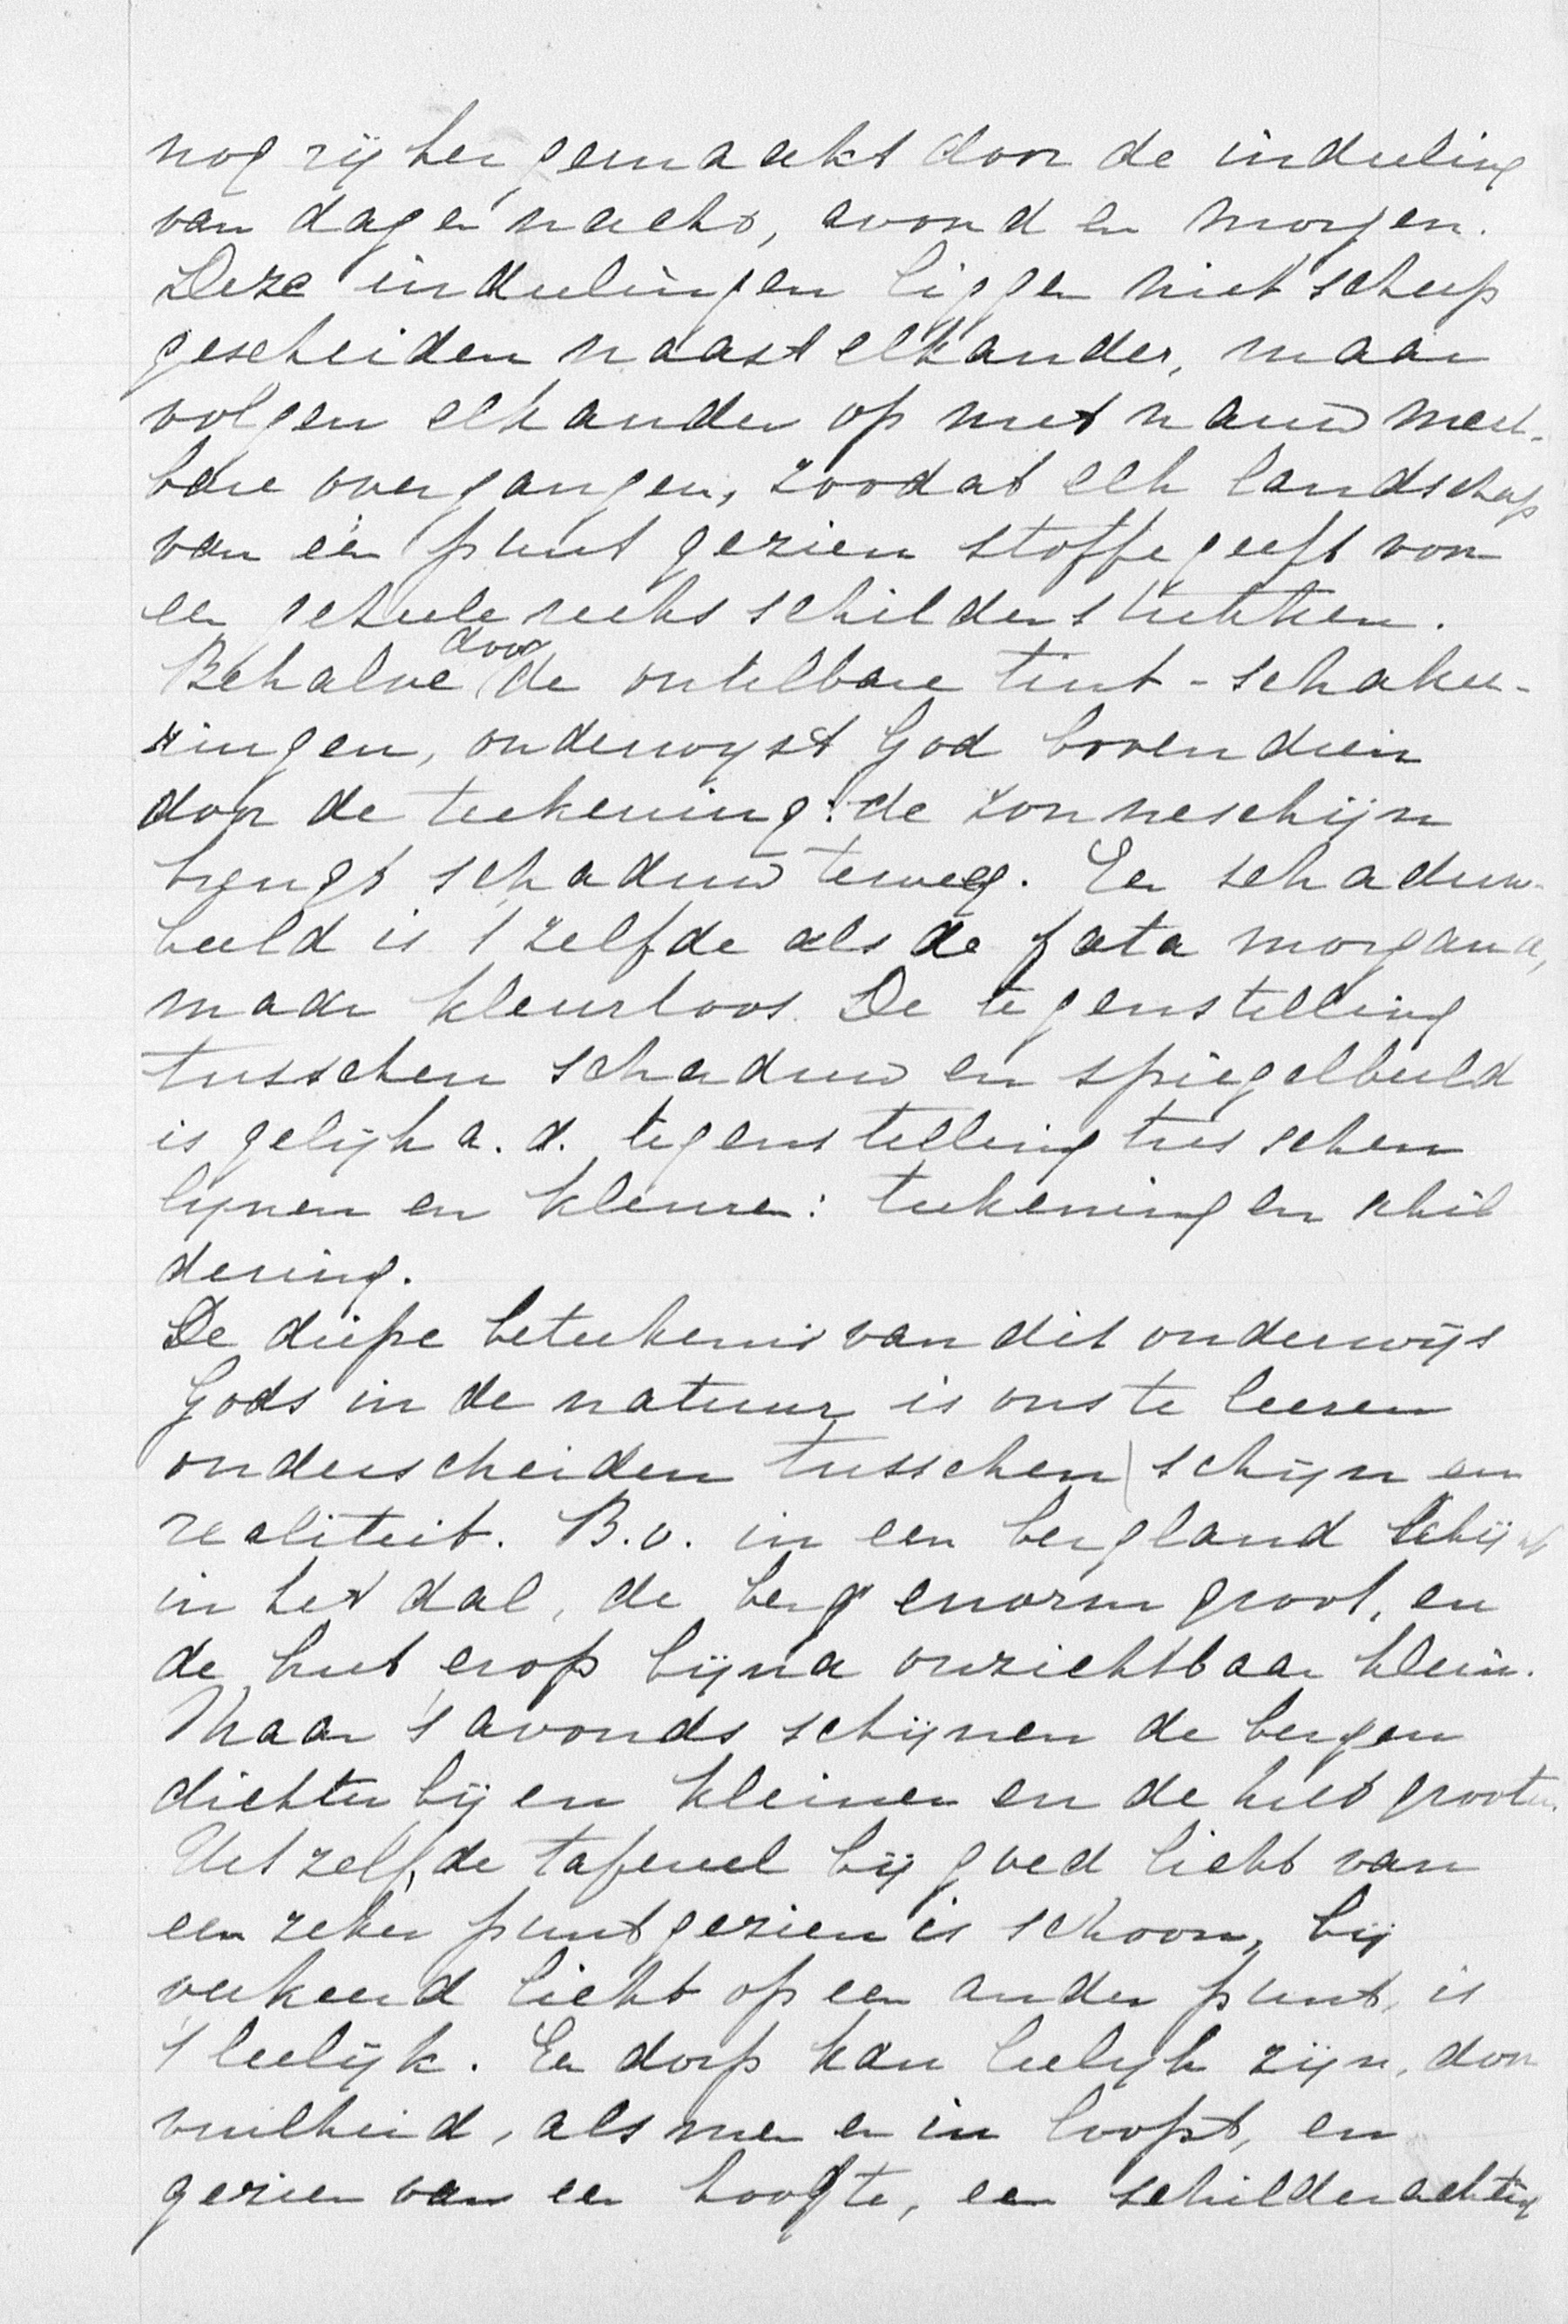 nog rijker gemaakt door de indeeling
van dag en nacht, avond en morgen.
Deze indeelingen liggen niet scherp
gescheiden naast elkander, maar
volgen elkander op met nauw merk-
bare overgangen, zoodat elk landschap
van één punt gezien stoffe geeft voor
een geheele reeks schilderstukken.
Behalve door de ontelbare tint-schakee-
ringen, onderwyst God bovendien
door de teekening: de zonneschijn
brengt schaduw teweeg. Een schaduw-
beeld is 't zelfde als de fata morgana,
maar kleurloos. De tegenstelling
tusschen schaduw en spiegelbeeld
is gelijk a. d. tegenstelling tusschen
lijnen en kleuren: teekening en schil
dering.
De diepe beteekenis van dit onderwijs
Gods in de natuur is ons te leeren
onderscheiden tusschen schijn en
realiteit. B.v. in een bergland schijnt
in het dal, de berg enorm groot, en
de hut erop bijna onzichtbaar klein.
Maar 's avonds schijnen de bergen
dichter bij en kleiner en de hut grooter.
Het zelfde tafereel bij goed licht van
een zeker punt gezien is schoon, bij
verkeerd licht op een ander punt, is
't leelijk. Een dorp kan leelijk zijn, door
vuilheid, als men er in loopt, en
gezien van een hoogte, een schilderachtig